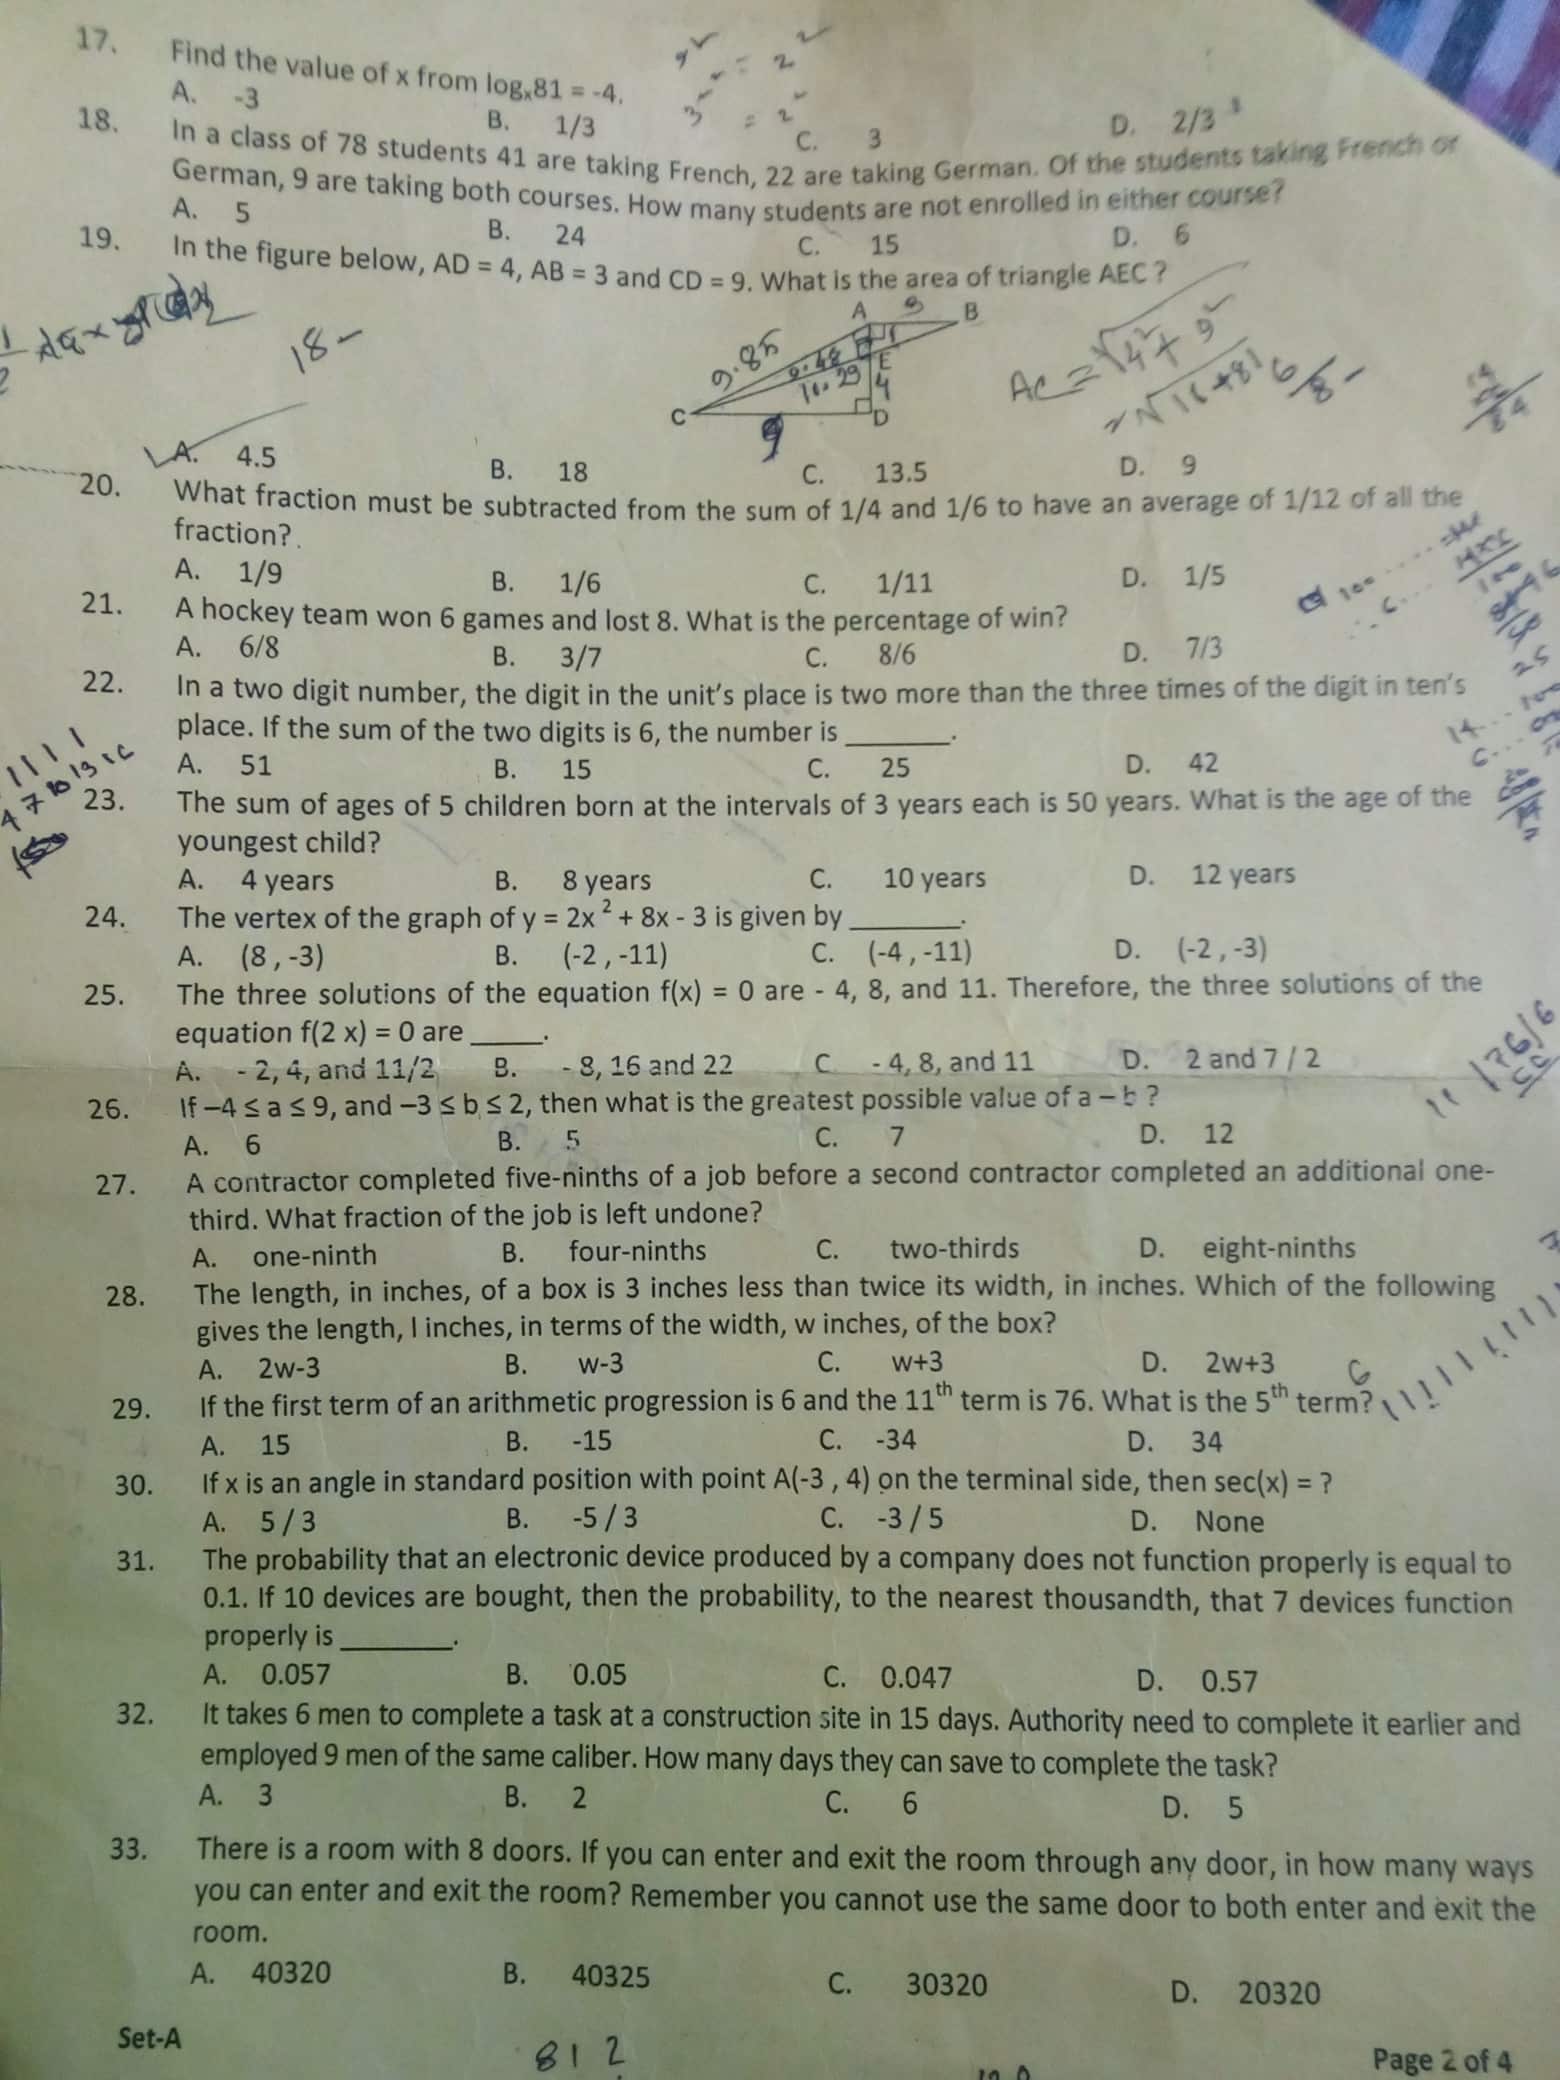 17. Find the value of x from logₓ81 = -4.
A. -3 B. 1/3 C. 3 D. 2/3
18. In a class of 78 students 41 are taking French, 22 are taking German. Of the students taking French or
German, 9 are taking both courses. How many students are not enrolled in either course?
A. 5 B. 24 C. 15 D. 6
19. In the figure below, AD = 4, AB = 3 and CD = 9. What is the area of triangle AEC ?
A B
18 -
9.85
E
10.29 4
C D
9
A. 4.5 B. 18 C. 13.5 D. 9
20. What fraction must be subtracted from the sum of 1/4 and 1/6 to have an average of 1/12 of all the
fraction?.
A. 1/9 B. 1/6 C. 1/11 D. 1/5
21. A hockey team won 6 games and lost 8. What is the percentage of win?
A. 6/8 B. 3/7 C. 8/6 D. 7/3
22. In a two digit number, the digit in the unit's place is two more than the three times of the digit in ten's
place. If the sum of the two digits is 6, the number is ________.
A. 51 B. 15 C. 25 D. 42
23. The sum of ages of 5 children born at the intervals of 3 years each is 50 years. What is the age of the
youngest child?
A. 4 years B. 8 years C. 10 years D. 12 years
24. The vertex of the graph of y = 2x² + 8x - 3 is given by ________.
A. (8 , -3) B. (-2 , -11) C. (-4 , -11) D. (-2 , -3)
25. The three solutions of the equation f(x) = 0 are - 4, 8, and 11. Therefore, the three solutions of the
equation f(2 x) = 0 are _____.
A. - 2, 4, and 11/2 B. - 8, 16 and 22 C - 4, 8, and 11 D. 2 and 7 / 2
26. If –4 ≤ a ≤ 9, and –3 ≤ b ≤ 2, then what is the greatest possible value of a – b ?
A. 6 B. 5 C. 7 D. 12
27. A contractor completed five-ninths of a job before a second contractor completed an additional one-
third. What fraction of the job is left undone?
A. one-ninth B. four-ninths C. two-thirds D. eight-ninths
28. The length, in inches, of a box is 3 inches less than twice its width, in inches. Which of the following
gives the length, l inches, in terms of the width, w inches, of the box?
A. 2w-3 B. w-3 C. w+3 D. 2w+3
29. If the first term of an arithmetic progression is 6 and the 11th term is 76. What is the 5th term?
A. 15 B. -15 C. -34 D. 34
30. If x is an angle in standard position with point A(-3 , 4) on the terminal side, then sec(x) = ?
A. 5 / 3 B. -5 / 3 C. -3 / 5 D. None
31. The probability that an electronic device produced by a company does not function properly is equal to
0.1. If 10 devices are bought, then the probability, to the nearest thousandth, that 7 devices function
properly is ________.
A. 0.057 B. 0.05 C. 0.047 D. 0.57
32. It takes 6 men to complete a task at a construction site in 15 days. Authority need to complete it earlier and
employed 9 men of the same caliber. How many days they can save to complete the task?
A. 3 B. 2 C. 6 D. 5
33. There is a room with 8 doors. If you can enter and exit the room through any door, in how many ways
you can enter and exit the room? Remember you cannot use the same door to both enter and exit the
room.
A. 40320 B. 40325 C. 30320 D. 20320
Set-A
812
Page 2 of 4